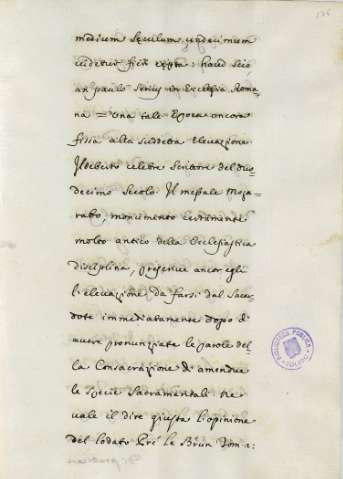 136
medium Sęculum undecimum
videtur fieri cępta: haud scio
an paulo serius in Ecclesia Roma=
na = Una tale Epoca ancora
fissa alla suddetta elevazione
Ildeberto celebre Scrittore del duo=
decimo Secolo. Il messale Moza=
rabo, monumento certamente
molto antico della Ecclesiastica
disciplina, prescrive ancor egli
l'elevazione da farsi dal Sacer=
dote immediatamente dopo d'
avere pronunziate le parole del=
la Consacrazione d'amendue
le Specie Sacramentali. Ne
vale il dire giusta l'opinione
del lodato Pri. le Brun Dom:
BIBLIOTECA PUBLICA
TOLEDO